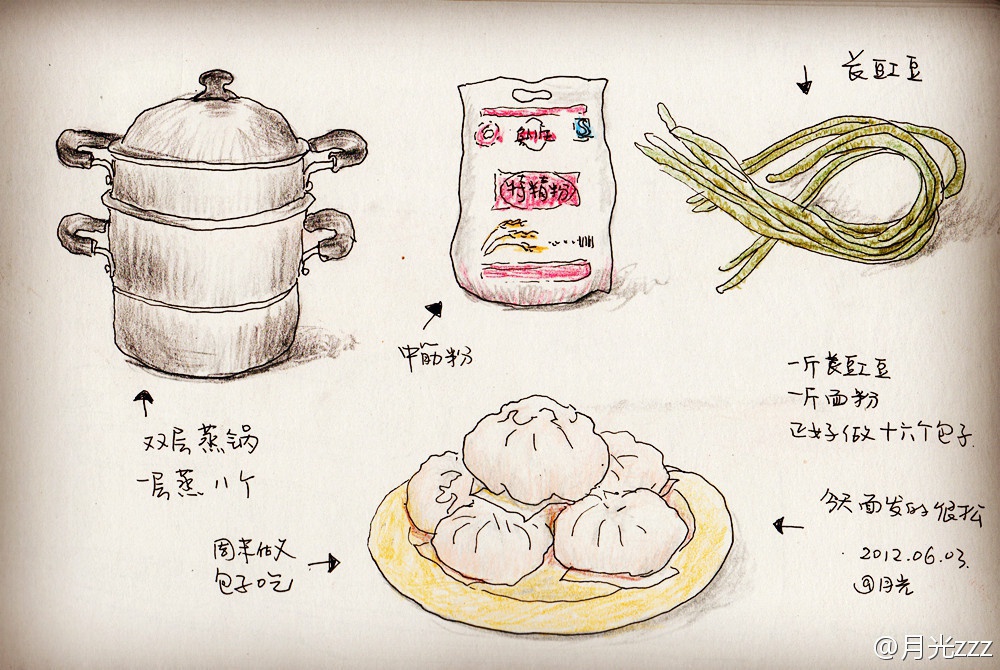 长豇豆
特精粉
中筋粉
双层蒸锅
一层蒸八个
一斤长豇豆
一斤面粉
正好做十六个包子.
今天面发的很松
2012.06.03.
@月光
周末做
包子吃
@月光zzz